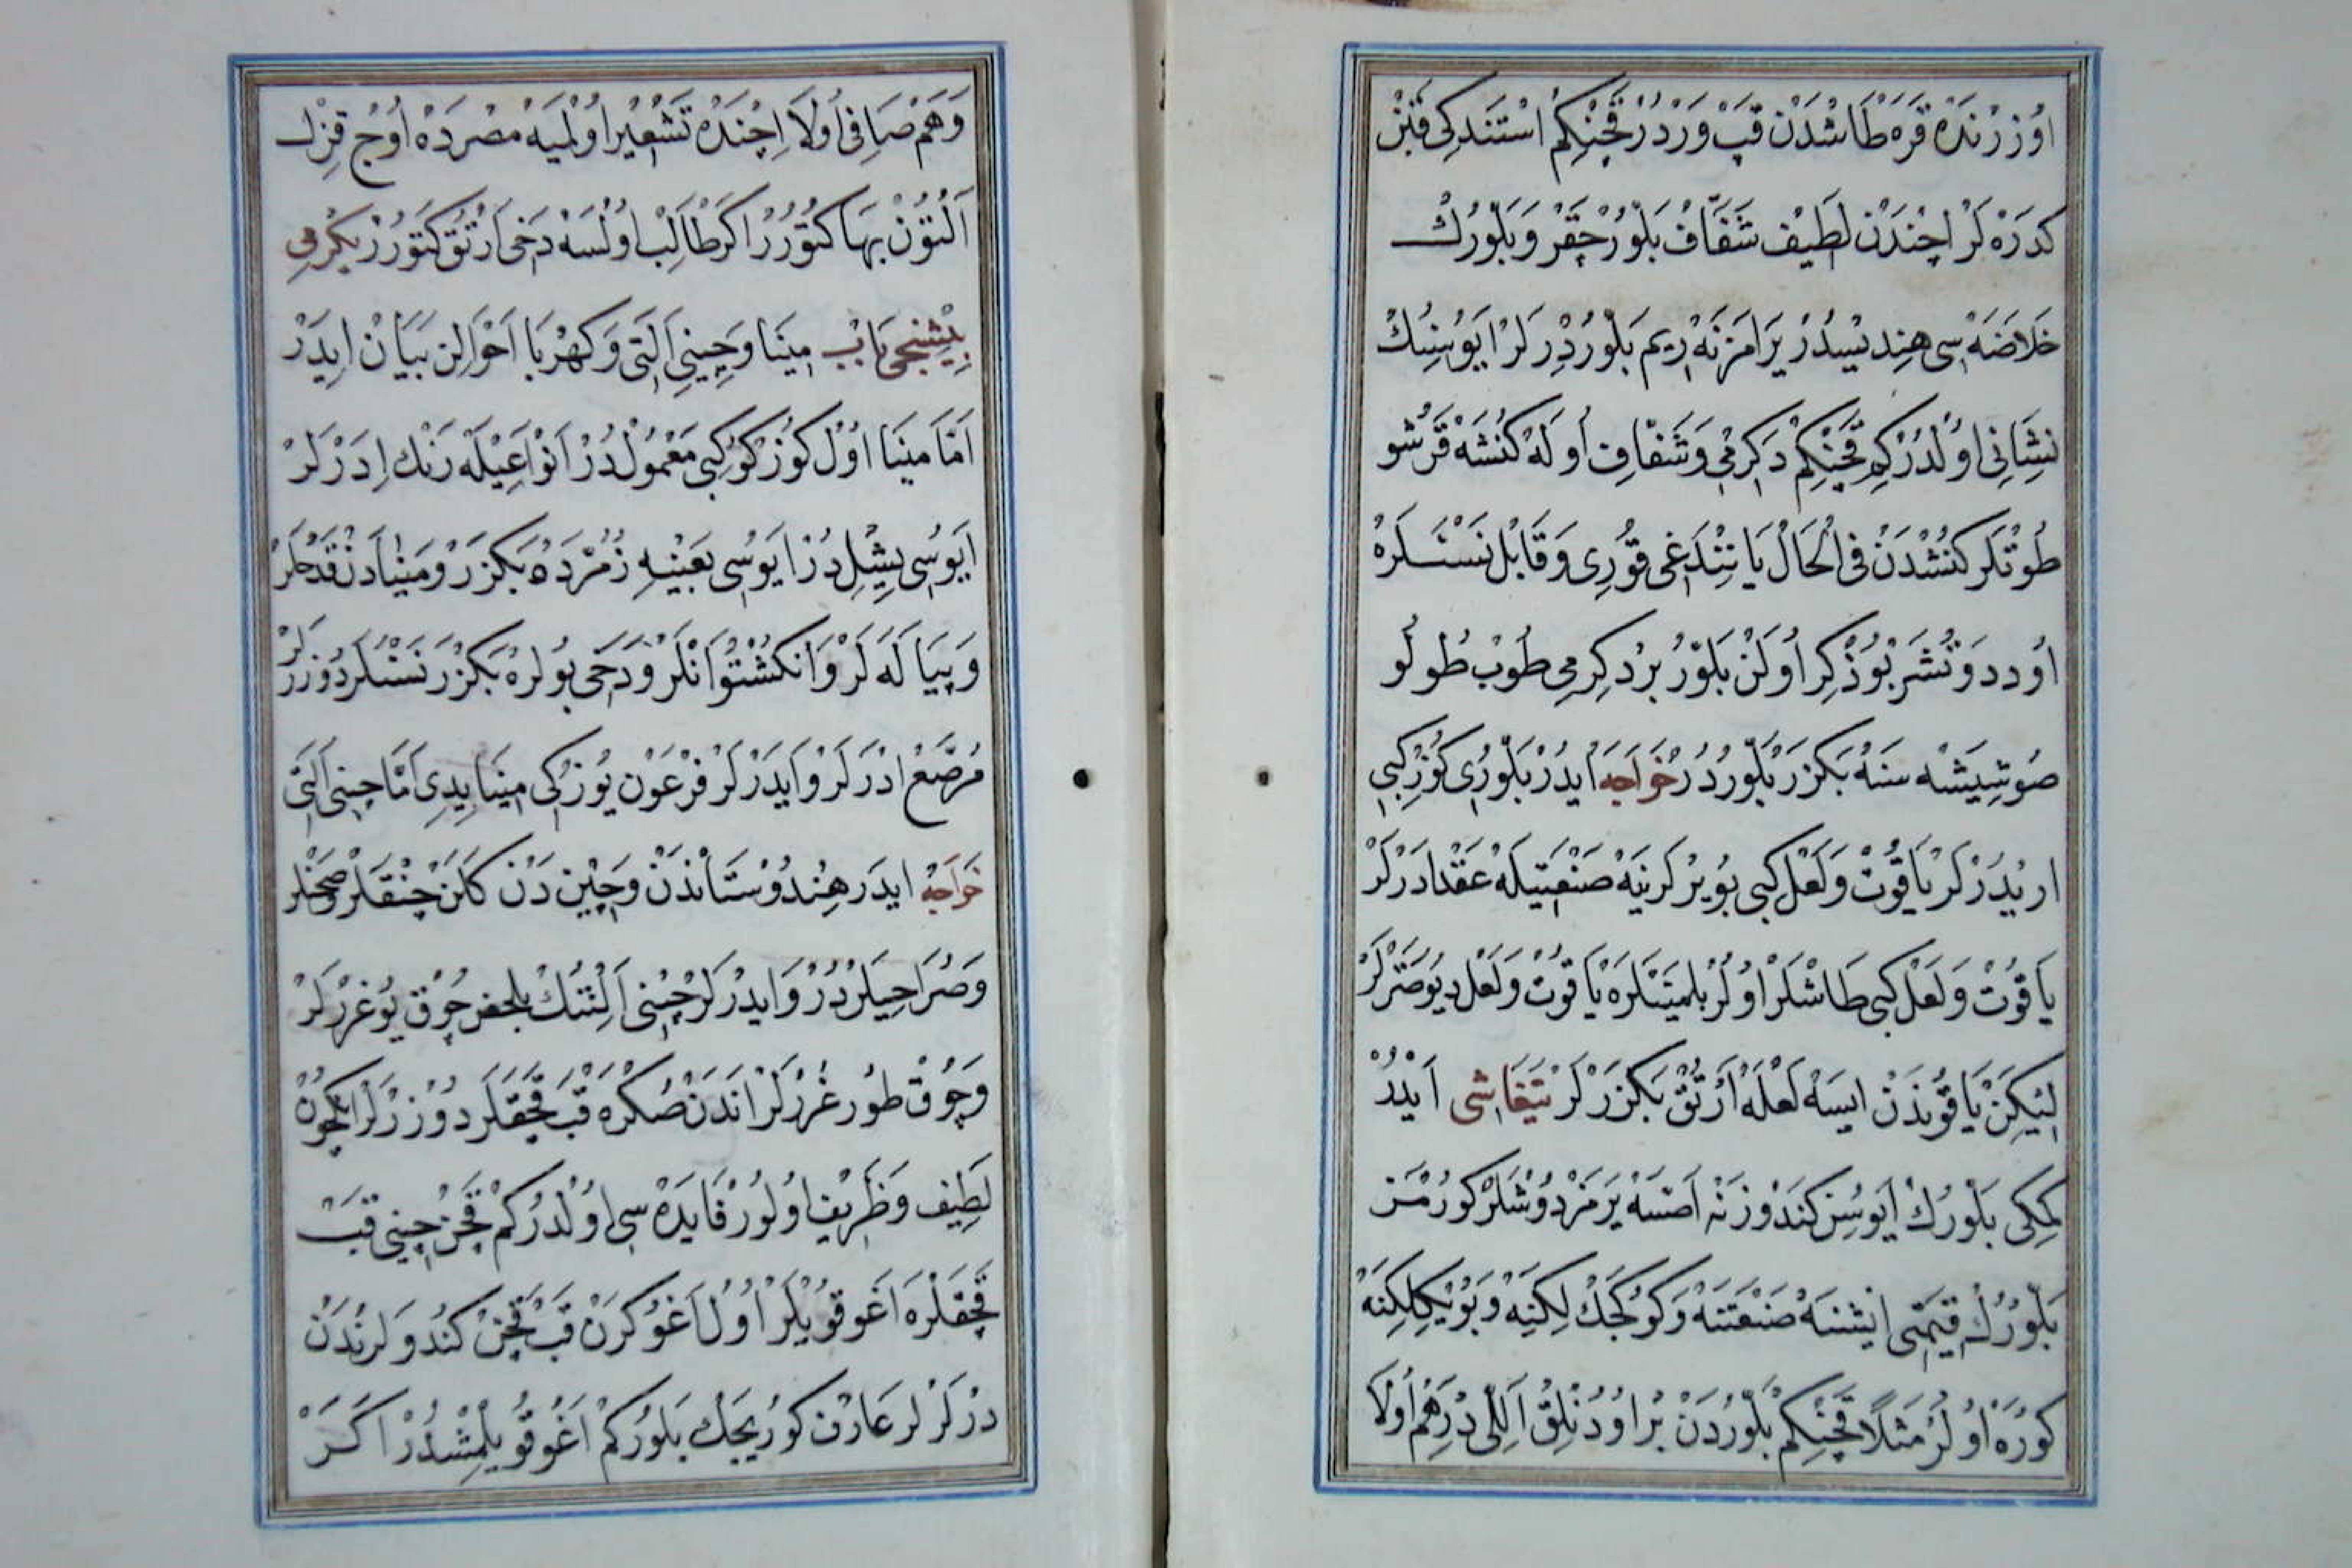 اوُزرْنَدَه قَرَه طَاشْدَنْ قَپْ وَرْدُرْ قَچَنْكِمْ اُسْتَنْدَكِی قَبْنْ
كَدَرَه لَرْ اِچِنْدَنْ لَطِيفْ شَفَّافْ بَلّوُرْ چِقَرْ وَبَلّوُرُكْ
خَلَاصَه سِی هِنْدیسِیدُرْ یَرَامَزْنَه رِیم بَلّوُرْ دِرلَرْ اَیوُسِنُكْ
نِشَانِی اوُلْدُرْكِمْ قَچَنْكِمْ دَكِرْمِی وَشَفَّافْ اُولَه كُنْشَه قَرْشُو
طُوتْلَر كُنْشْدَنْ فِی الْحَالْ یَانِنْدَاغِی قوُرِی وَقَابِلْ نَسْنَلَرَه
اُودْ دوُتُشَرْ بُوذِكِرْ اُولَنْ بَلّوُرْ بِرْ دَكِرْمِی طُوبْ طُولُو
صُو شِیشَه سِنَه بَكْزَرْ بَلّوُرْدُرْ خَوَاجَه اَیدُرْ بَلّوُرِی كوُزْكِبِی
اَرِیدُرْلَرْ یَاقُوتْ وَلَعْلْ كِبِی بُویَرْلَرْ ینَه صَنْعَتِیلَه عَقْد ادَرْلَرْ
یَاقُوتْ وَلَعْلْ كِبِی طَاشْلَرْ اوُلُرْ بِلْمَیَنْلَرَه یَاقُوتْ وَلَعْلْ دِیو صَتَرْلَرْ
لیكِنْ یَاقُوتْدَنْ ایسَه لَعْلَه اَرْتُقْ بَكْزَرْلَرْ تیفَاشِی اَیدُرْ
كِمْكِی بَلّوُرُكْ اَیوُسِنْ كَنْدوُزِنَه اَصْسَه یَرَمَزْ دوُشْلَرْ كوُرْمَزْ
بَلّوُرُكْ قِیمَتِی اِیشِنَه صَنْعَتِنَه وَكوُكْچَكْ لِكِنَه وَبُویُكْلِكِنَه
كوُرَه اوُلُرْ مَثَلًا قَچَنْكِمْ بَلّوُرْدَنْ بِرْ اوُدُنْلِقْ اَللِّی دِرْهَمْ اُولَا
وَهَمْ صَافِی اُولَا اِچِنْدَه تَشْعِیرْ اوُلْمَیَه مِصْرْدَه اوُچْ قِزِلْ
اَلْتوُنْ بَهَا كَتوُرُرْ اَكَرْ طَالِبْ اوُلْسَه دَخِی اَرْتُقْ كَتوُرُرْ یِكِرْمِی
بِشِنْجِی بَابْ مِینَا وَچِینِی اَلَتِی وَكَهْرُبَا اَحْوَالِنْ بَیَانْ اِیدَرْ
اَمَّا مِینَا اوُلْ كوُزْ كِبِی مَعْمُولْدُرْ اَنْوَاعِیلَه رَنْك اِدَرْلَرْ
اَیوُسِی یِشِلْدُرْ اَیوُسِی بِعَیْنِهِ زُمُرُّدَه بَكْزَرْ وَمِینَادَنْ قَدَحْلَرْ
وَپِیَالَه لَرْ وَانْكُشْتُوَانْلَرْ وَدَخِی بُولَرَه بَكْزَرْ نَسْنَلَرْ دوُزَرْلَرْ
مُرَصَّعْ اِدَرْلَرْ وَاَیدَرْلَرْ فِرْعَوْن یوُزُكِی مِینَایِیدِی اَمَّا چِینِی اَلَتِی
خَوَاجَه ایدَر هِنْدوُسْتَانْدَنْ وَچِیْن دَنْ كَلَنْ چَنَقْلَرْ وَصَحْنْلَرْ
وَصُرَاحِیلَرْدُرْ وَایدُرْلَرْ چِینِی اَلَتِنُكْ بَلْچِغِنْ چوُق یوُغُرُرْلَرْ
وَچوُقْ طوُرغُرُرْلَرْ اَنْدَنْ صُكْرَه قَبْ قَچَقْلَرْ دوُزَرْلَرْ اَنُكْچوُنْ
لَطِیفْ وَظَرِیفْ اوُلوُرْ فَایْدَه سِی اوُلْدُرْكِمْ قَچَنْ چِینِی قَبْ
قَچَقْلَرَه اَغوُ قوُیَلَرْ اوُلْ اَغوُ كِرَنْ قَبْ قَچَنْ كَنْدوُلَرِنْدَنْ
دَرْلَرْلَرْ عَارِفْ كوُرِیجَكْ بِلوُرْكِمْ اَغوُ قوُیُلْمِشْدُرْ اَكَرْ